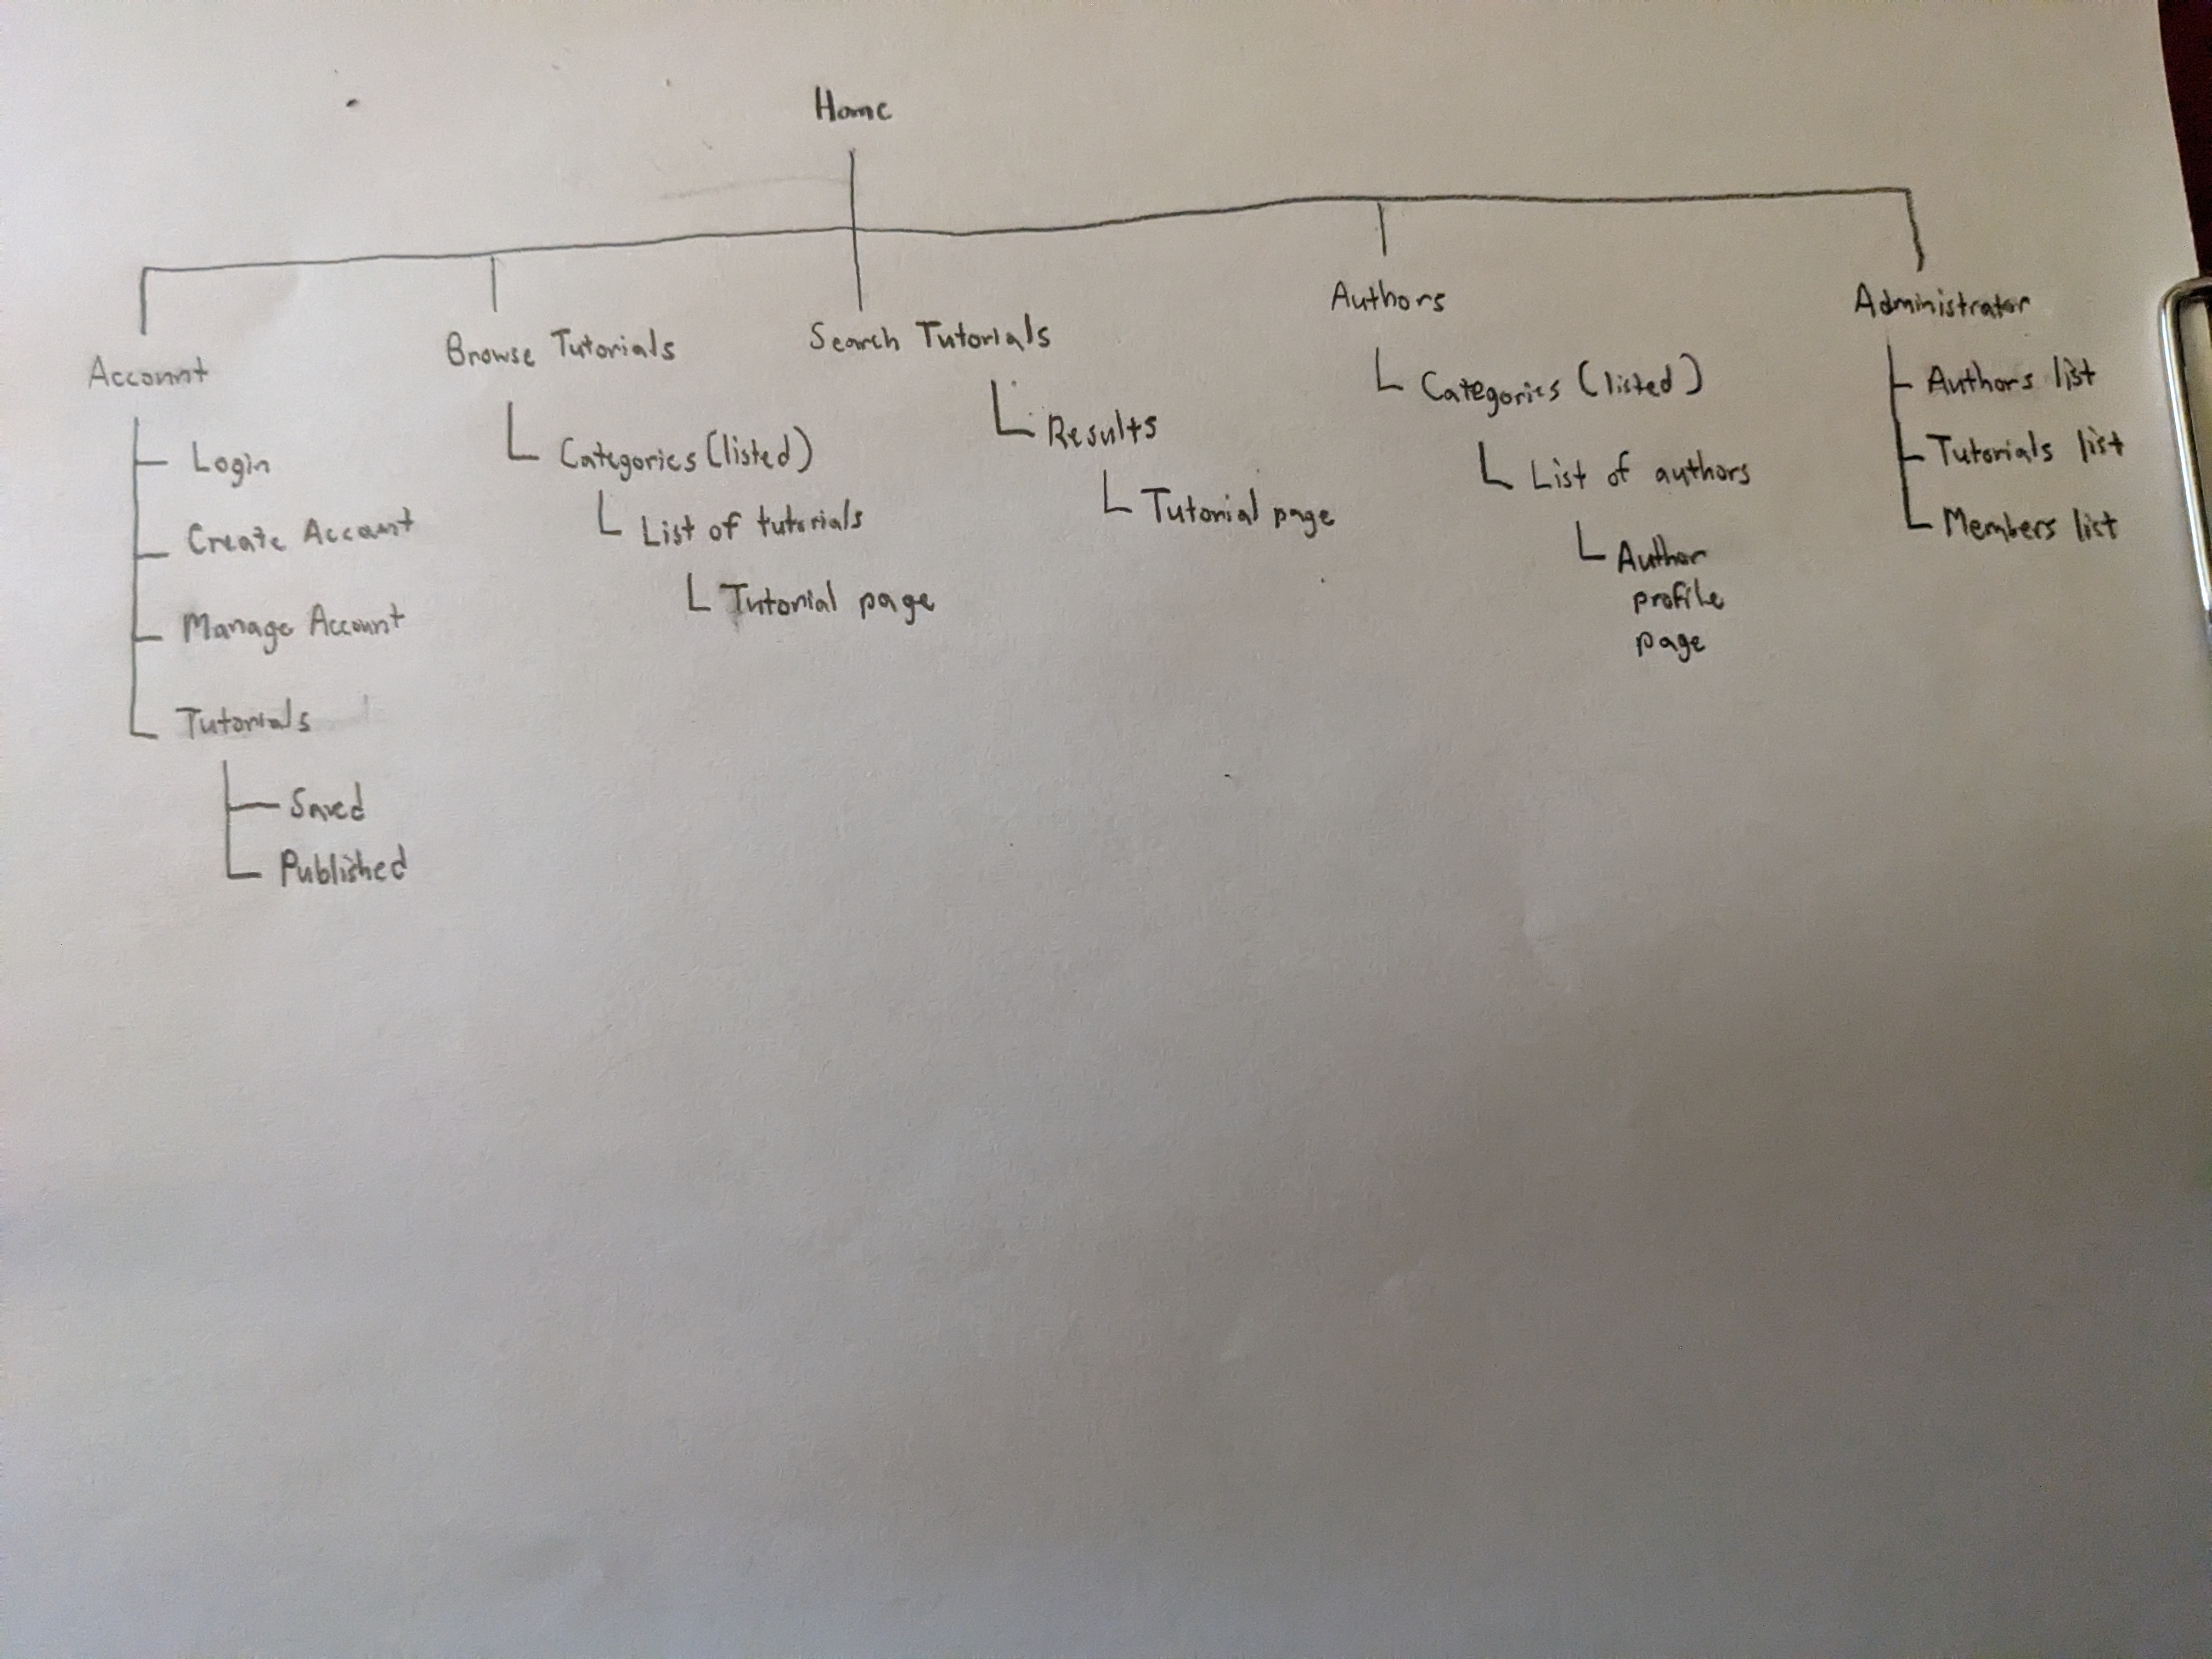 Home
Account
Login
Create Account
Manage Account
Tutorials
Saved
Published
Browse Tutorials
Categories (listed)
List of tutorials
Tutorial page
Search Tutorials
Results
Tutorial page
Authors
Categories (listed)
List of authors
Author
profile
page
Administrator
Authors list
Tutorials list
Members list